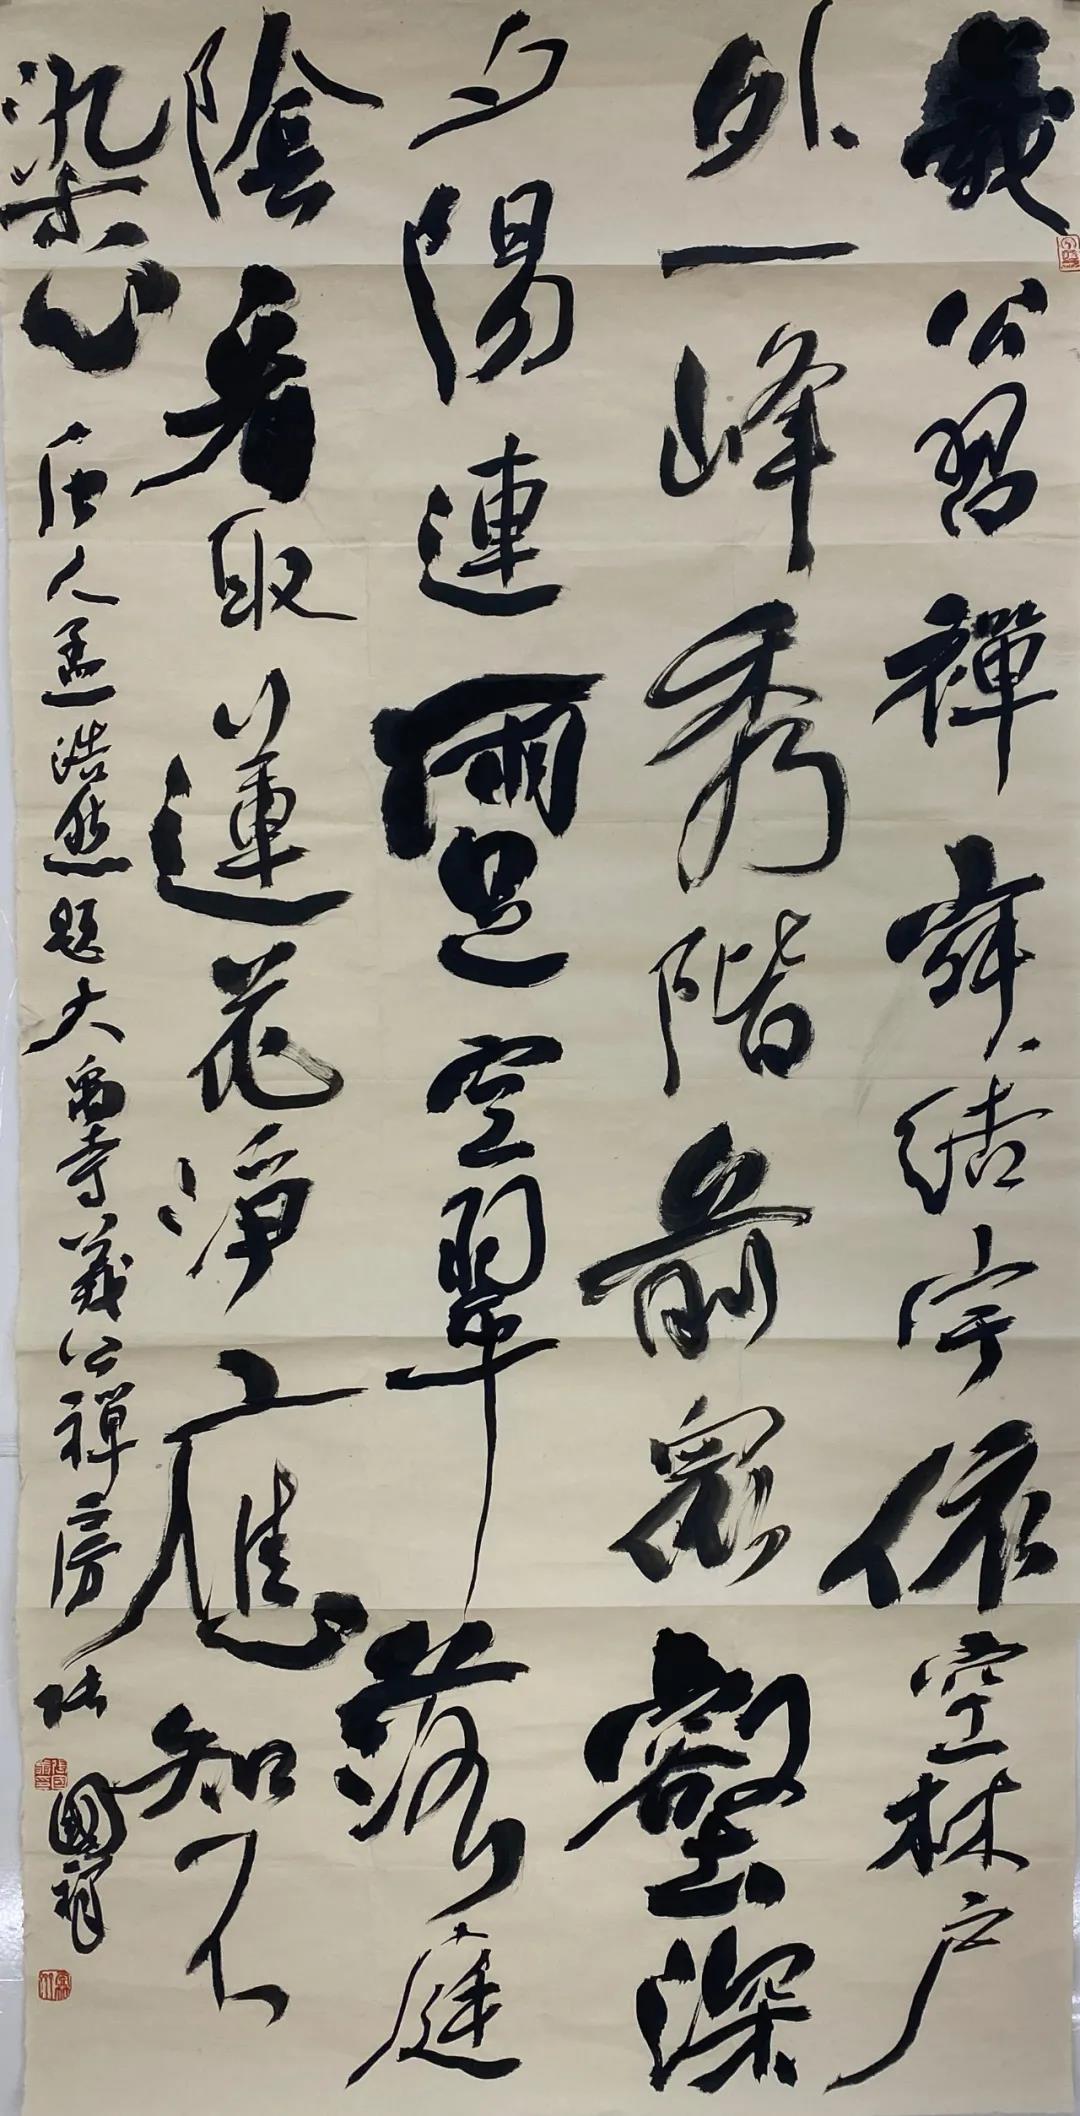 義公習禪寂結宇依空林户
外一峰秀階前眾壑深
夕陽連雨足空翠落庭
陰看取蓮花淨應知不
染心 唐人孟浩然題大禹寺義公禪房 張國